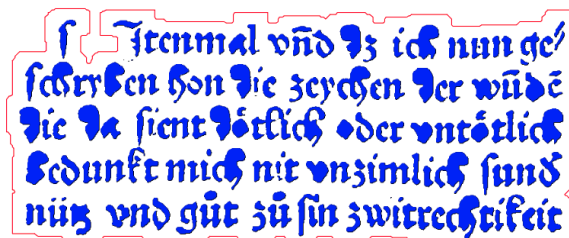 ſ Jtenmal vn̄d dz ich nun ge⸗
ſchryben hon die zeychen der wūdē
die da ſient dötlich oder vntötlich
bedunkt mich nit vnzimlich ſund
nütz vnd gůt zů ſin zwitrechtikeit